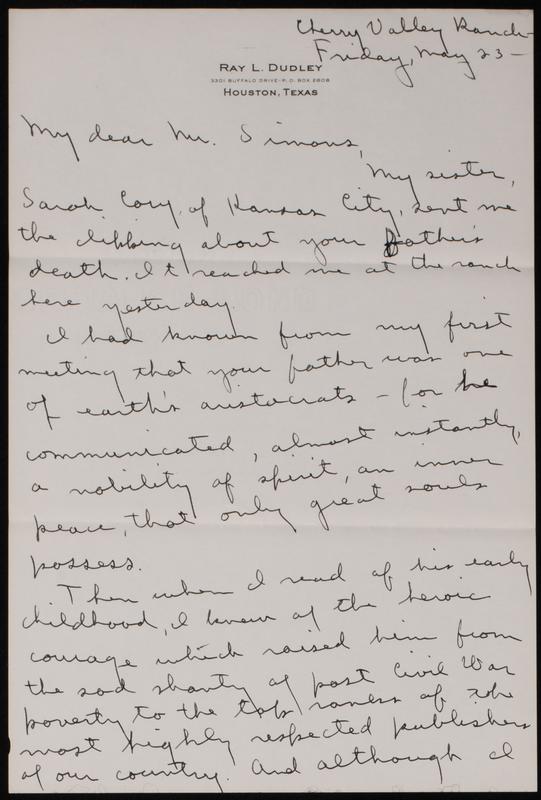 Cherry Valley Ranch -
Friday, May 23 -
RAY L. DUDLEY
3301 BUFFALO DRIVE - P.O. BOX 2608
HOUSTON, TEXAS
My dear Mr. Simons,
My sister,
Sarah Cory, of Kansas City, sent me
the clibbing about your father's
death. It reached me at the ranch
here yesterday.
I had known from my first
meeting that your father was one
of earth's aristocrats - for he
communicated, almost instantly,
a nobility of spirit, an inner
peace, that only great souls
possess.
Then when I read of his early
childhood, I knew of the heroic
courage which raised him from
the sod shanty of post Civil War
poverty to the top ranks of the
most highly respected publishers
of our country. And although I